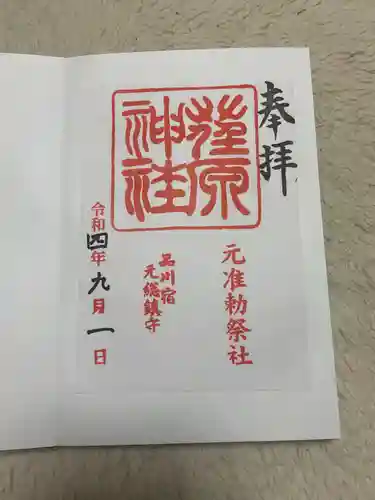 奉拝
荏原神社
元准勅祭社
品川宿
元総鎮守
令和四年九月一日